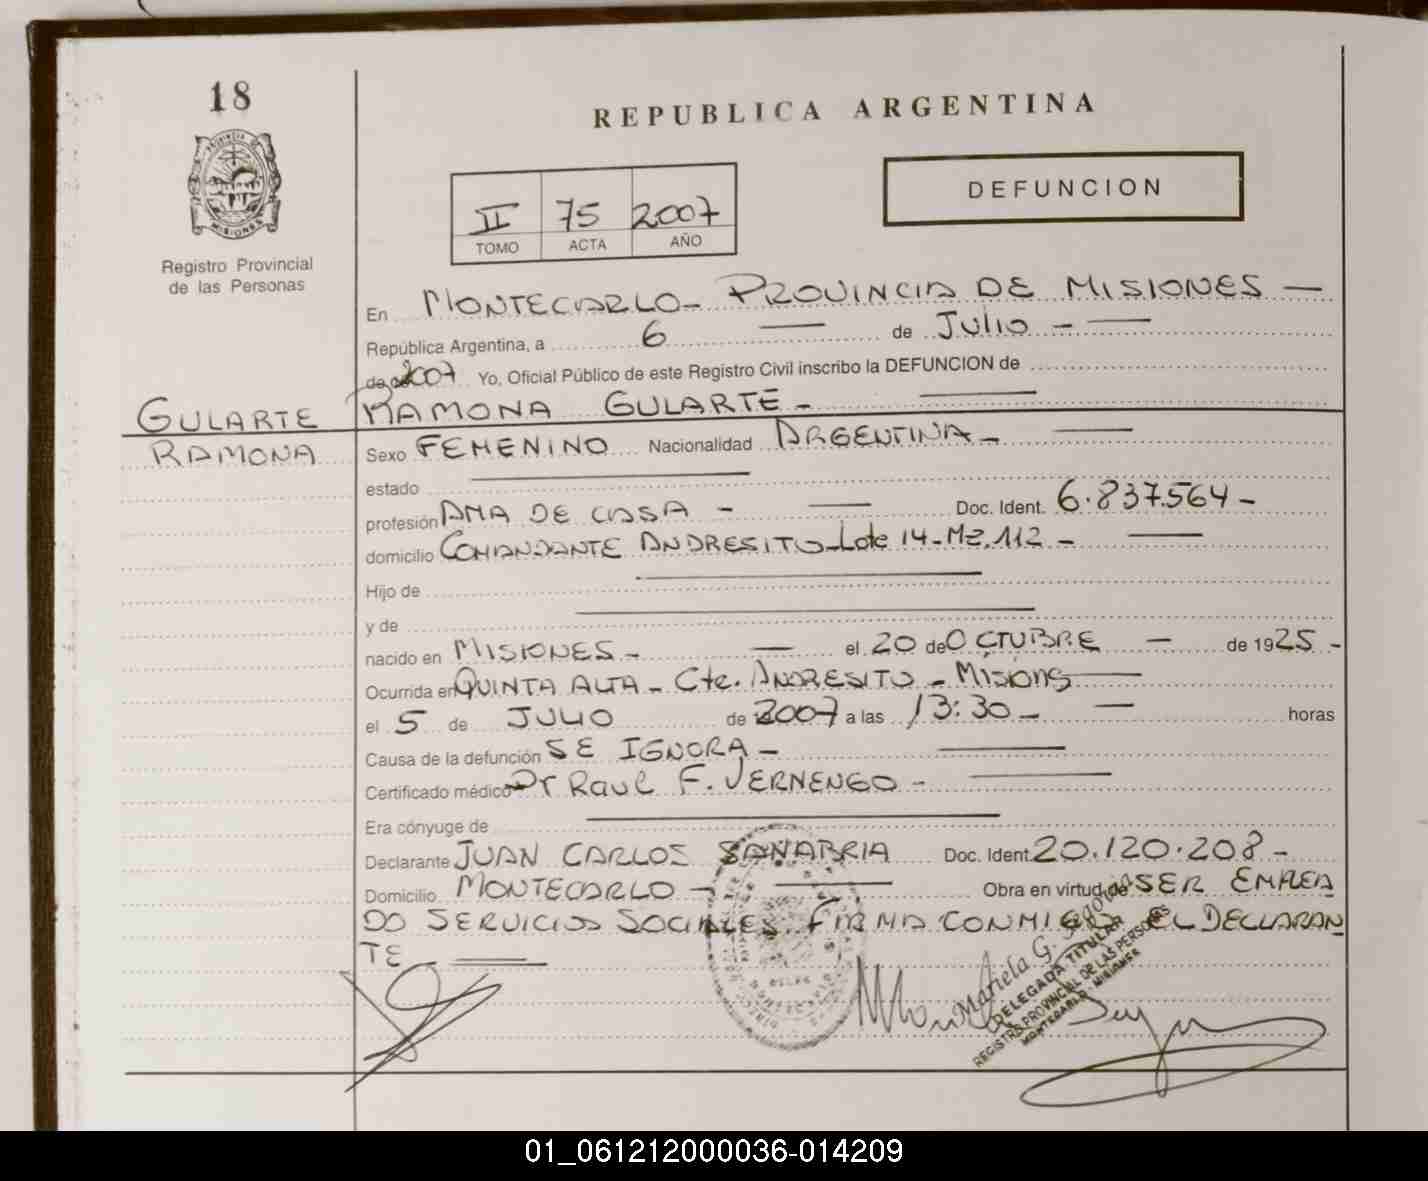 18
REPUBLICA ARGENTINA
DEFUNCION
II 75 2007
TOMO ACTA AÑO
Registro Provincial
de las Personas
En MONTECARLO - PROVINCIA DE MISIONES —
República Argentina, a 6 — de JULIO - —
de 2007 Yo, Oficial Público de este Registro Civil inscribo la DEFUNCION de
GULARTE RAMONA GULARTE - —
RAMONA
Sexo FEMENINO Nacionalidad ARGENTINA - —
estado —
profesión AMA DE CASA - — Doc. Ident. 6.837.564 -
domicilio COMANDANTE ANDRESITO - Lote 14 - Mz. 112 - —
Hijo de —
y de —
nacido en MISIONES - — el 20 de OCTUBRE — de 1925 -
Ocurrida en QUINTA ALTA - Cte. ANDRESITO - Misiones —
el 5 de JULIO de 2007 a las 13:30 - — horas
Causa de la defunción SE IGNORA - —
Certificado médico Dr Raul F. VERNENGO - —
Era cónyuge de —
Declarante JUAN CARLOS SANABRIA Doc. Ident. 20.120.208 -
Domicilio MONTECARLO - — Obra en virtud de SER EMPLEA
DO SERVICIOS SOCIALES. FIRMA CONMIGO EL DECLARAN
TE —
Mariela G.
DELEGADA TITULAR
REGISTRO PROVINCIAL DE LAS PERSONAS
MONTECARLO - MISIONES
01_061212000036-014209